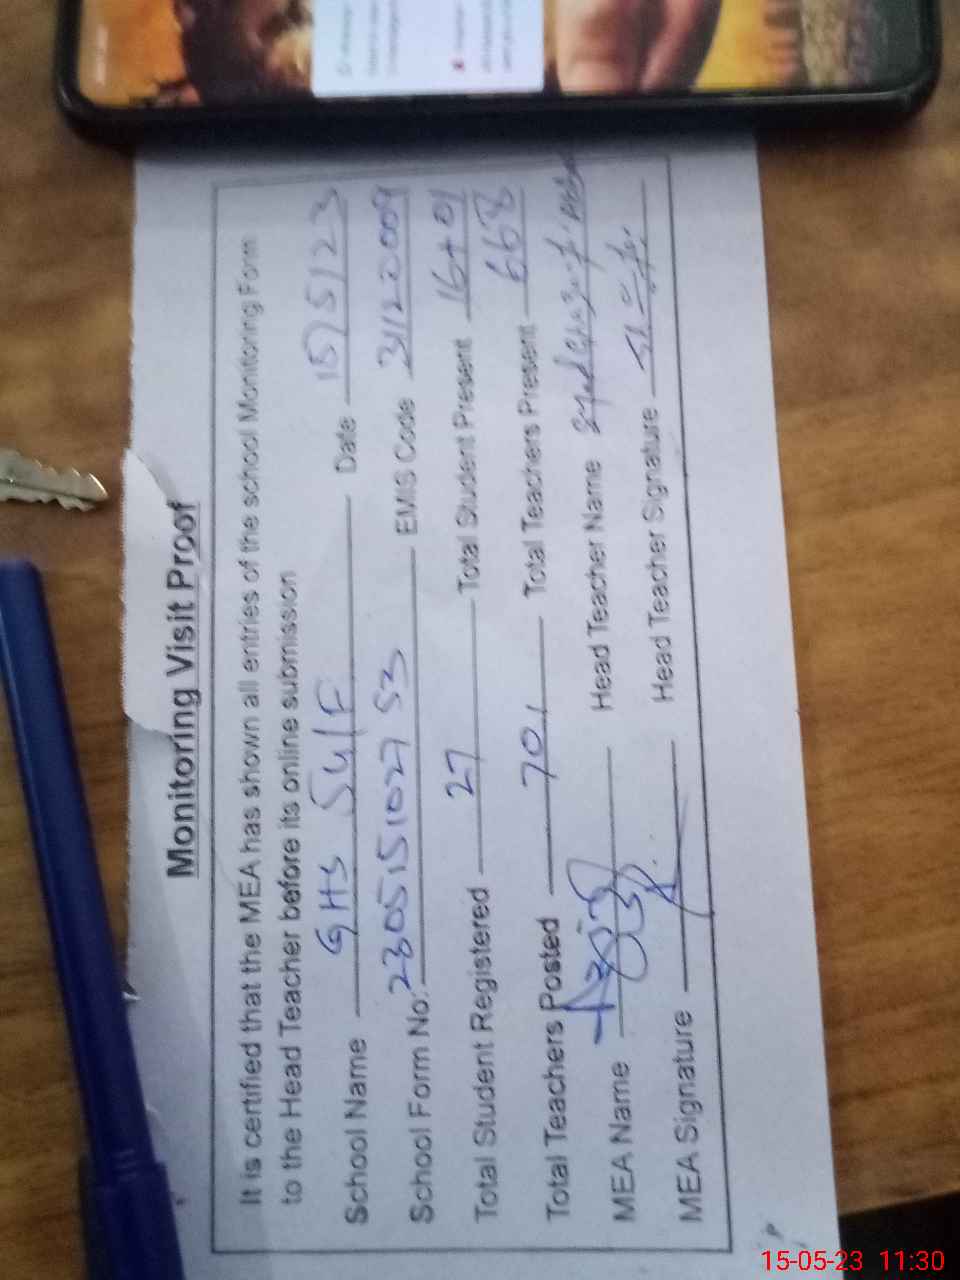 Monitoring Visit Proof
It is certified that the MEA has shown all entries of the school Monitoring Form
to the Head Teacher before its online submission
School Name GHS Date 15/5/23
School Form No: 2305151027 53 EMIS Code 31120009
Total Student Registered 27 Total Student Present 16+01
Total Teachers Posted 701 Total Teachers Present 668
MEA Name Head Teacher Name Syed
MEA Signature Head Teacher Signature
15-05-23 11:30